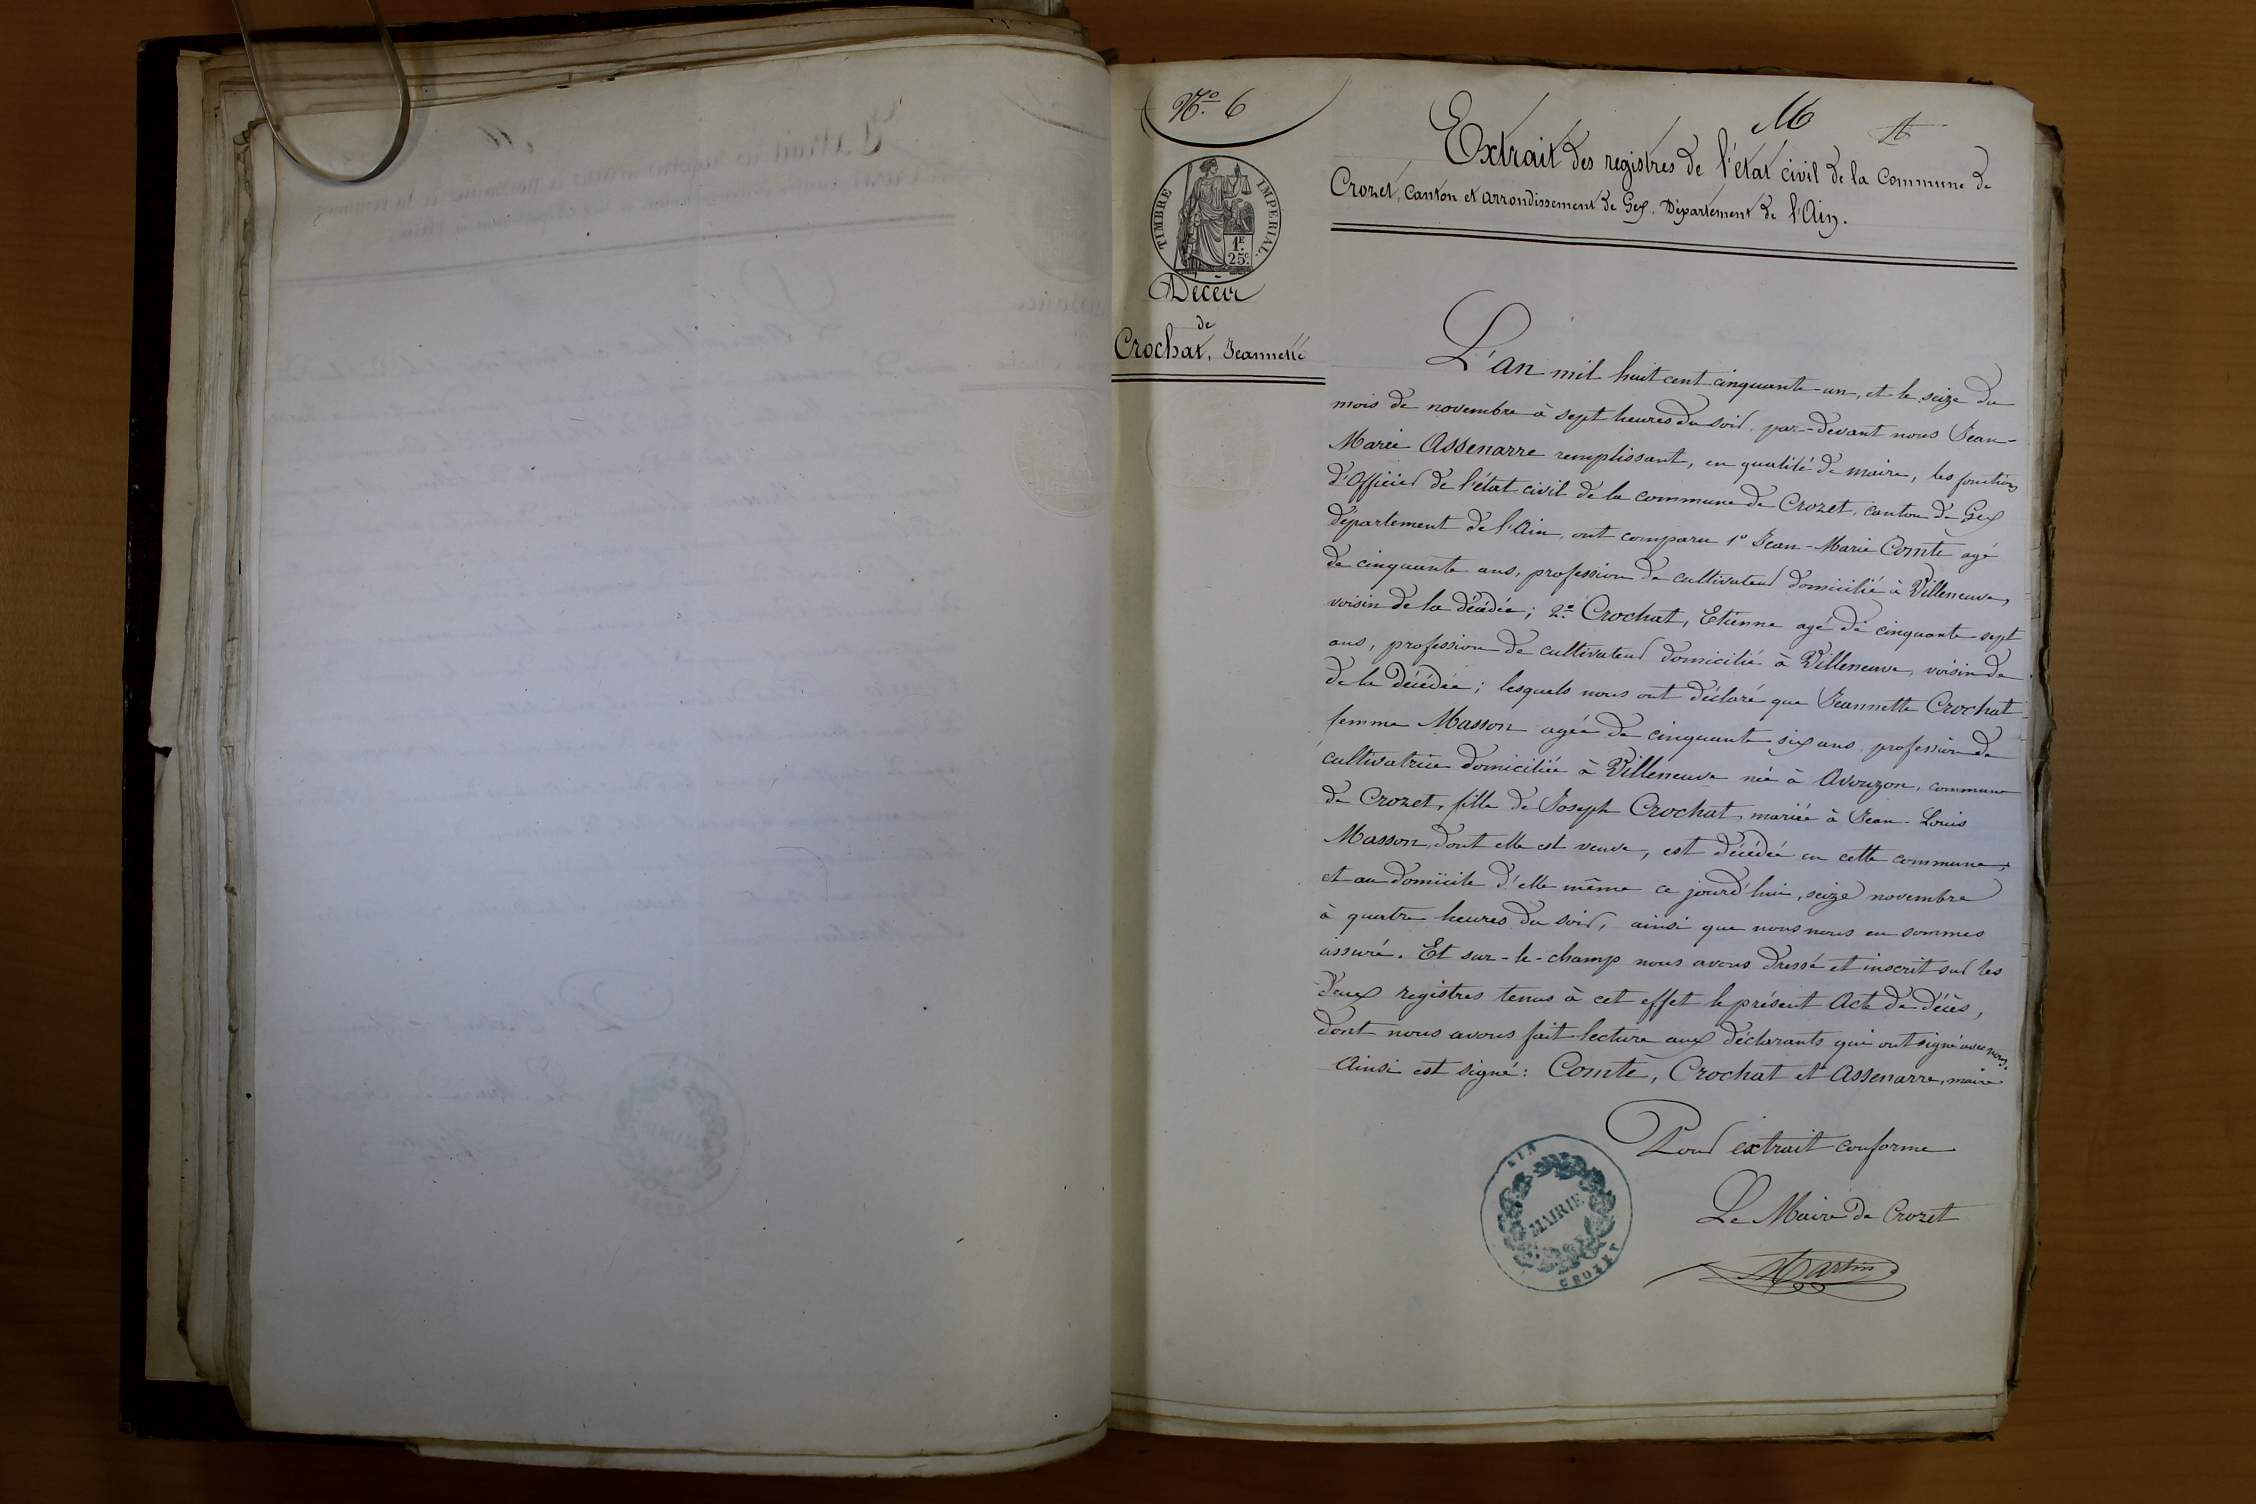 N.o 6
M
Extrait des registres de l'état civil de la Commune de
Crozet, Canton et arrondissement de Gex, Département de l'Ain.
TIMBRE IMPERIAL.
1F.
25c.
Décès
de
Crochat, Jeannette
L'an mil huit cent cinquante-un, et le seize du
mois de novembre à sept heures du soir, par-devant nous Jean-
Marie Assenarre remplissant, en qualité de maire, les fonctions
d'Officier de l'état civil de la commune de Crozet, canton de Gex
département de l'Ain, ont comparu 1o Jean-Marie Comte agé
de cinquante ans, profession de cultivateur domicilié à Villeneuve,
voisin de la décédée; 2.o Crochat, Etienne agé de cinquante-sept
ans, profession de cultivateur domicilié à Villeneuve, voisin de
de la décédée; lesquels nous ont déclaré que Jeannette Crochat
femme Masson agée de cinquante six ans profession de
cultivatrice domiciliée à Villeneuve née à Avouzon, commune
de Crozet, fille de Joseph Crochat, mariée à Jean-Louis
Masson, dont elle est veuve, est décédée en cette commune,
et au domicile d'elle même ce jourd'hui, seize novembre
à quatre heures du soir, ainsi que nous nous en sommes
assuré. Et sur-le-champ nous avons dressé et inscrit sur les
deux registres tenus à cet effet le présent Acte de décès,
dont nous avons fait lecture aux déclarants qui ont signé avec nous.
Ainsi est signé: Comte, Crochat et Assenarre, maire
Pour extrait conforme
Le Maire de Crozet
Martin
AIN
MAIRIE
CROZET